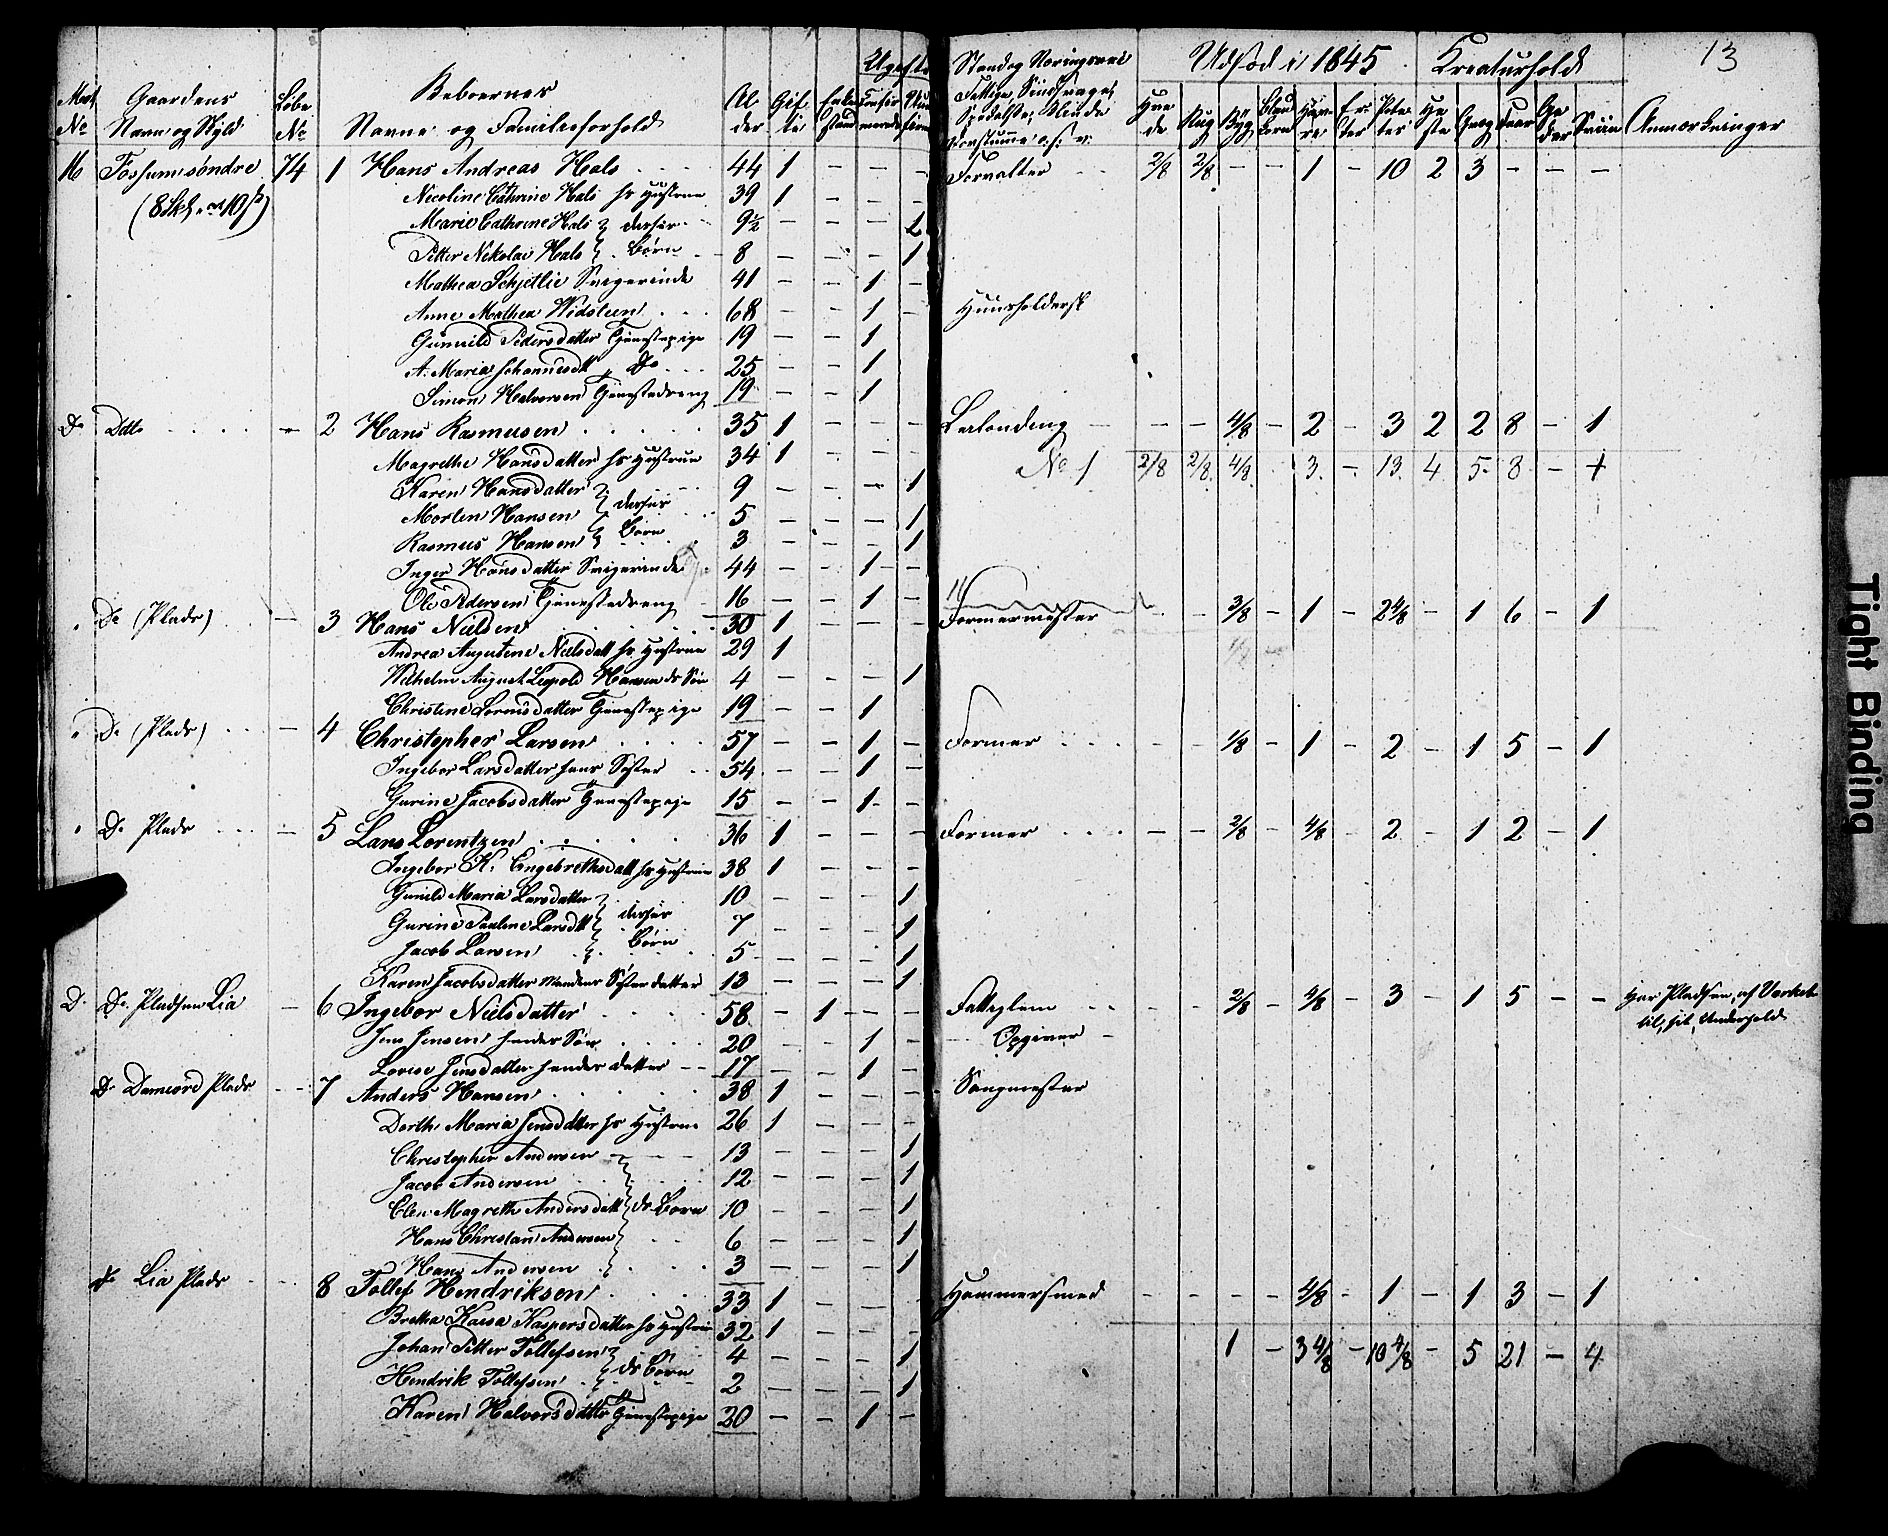 13
Matr No | Gaardens Navn og Skyld | Løbe No | Beboernes Navne og Familieforhold | Alder | Gifte | Enkestand | Confirmerede | Ugifte | Stand og Næringsvei | Udsæd i 1845 | Kreaturhold | Anmærkninger
Hvede | Rug | Byg | Bland Korn | Havre | Erter | Poteter | Heste | Qvæg | Faar | Geder | Sviin
16 Fossum søndre 74 1 Hans Andreas Hals 44 1 - - - Forvalter 2/8 2/8 - - 1 - 10 2 3 - - -
Nicoline Cathrine Hals hs Hustrue 39 1 - - -
Marie Cathrine Hals } deres 9½ - - - 1
Petter Nikolai Hals } Børn 8 - - - 1
Mathea Schjetlie Svigerinde 41 - - 1 -
Anne Mathea Widsteen 68 - - 1 - Huusholdersk
Gunnild Pedersdatter Tjenestepige 19 - - 1
A. Maria Johannesdt Do 25 - - 1
Simon Halvorsen Tjenestedreng 19 - - 1
Do Ditto - 2 Hans Rasmusen 35 1 - - - - - 4/8 - 2 - 3 2 2 8 - 1
Magrethe Hansdatter hs Hustrue 34 1 - - - No 1 2/8 2/8 4/8 3 - 13 4 5 8 - 1
Karen Hansdatter } 9 - - - 1
Morten Hansen } deres 5 - - - 1
Rasmus Hansen } Børn 3 - - - 1
Inger Hansdatter Svigerinde 44 - - 1 -
Ole Pedersen Tjenestedreng 16 - - 1 -
Do (Plads) - 3 Hans Nielsen 30 1 - - - Formermester - - 3/8 - 1 - 2 4/8 - 1 6 - 1
Andrea Augustine Nielsdatt hs Hustrue 29 1 - - -
Wilhelm August Leopold Hansen ds Søn 4 - - - 1
Christine Larsdatter Tjenestepige 19 - - 1
Do (Plads) - 4 Christopher Larsen 57 - - 1 - Former - - 1/8 - 1 - 2 - 1 5 - 1
Ingebor Larsdatter hans Søster 54 - - 1 -
Gurine Jacobsdatter Tjenestepige 15 - - 1 -
Do Plads - 5 Lars Lorentzen 36 1 - - - Former - - 2/8 - 4/8 - 2 - 1 2 - 1
Ingebor K. Engebrethsdatt hs Hustrue 38 1 - - -
Gunild Maria Larsdatter } 10 - - - 1
Gurine Pauline Larsdt } deres 7 - - - 1
Jacob Larsen } Børn 5 - - - 1
Karen Jacobsdatter Mandens Søsterdatter 13 - - - 1
Do Do Pladsen Lia - 6 Ingebor Nielsdatter 58 - 1 - - Fattiglem - - 2/8 - 4/8 - 3 - 1 5 - - Har Pladsen af Værket
Jens Jensen hendes Søn 20 - - 1 - Opgiver til sit Underhold
Lovise Jensdatter hendes datter 17 - - 1 -
Do Plads - 7 Anders Hansen 38 1 - - - Saugmester
Dorth. Maria Jensdatter hs Hustrue 26 1 - - -
Christopher Andersen } 13 - - - 1
Jacob Andersen } 12 - - - 1
Elen Magreth Andersdatt } ds Børn 10 - - - 1
Hans Christian Andersen } 6 - - - 1
Hans Andersen } 3 - - - 1
Do Lia Plads - 8 Tollef Hendriksen 33 1 - - - Hammersmed - - - - 4/8 - 1 - 1 3 - 1
Kaspersdatter hs Hustrue 32 1 - - -
Johan Petter Tollefsen } 4 - - - 1 1 - 3 4/8 - 10 4/8 - 5 21 - 4
Hendrik Tollefsen } ds Børn 2 - - - 1
Karen Halvorsdatter Tjenestepige 20 - - 1 -
Tight Binding